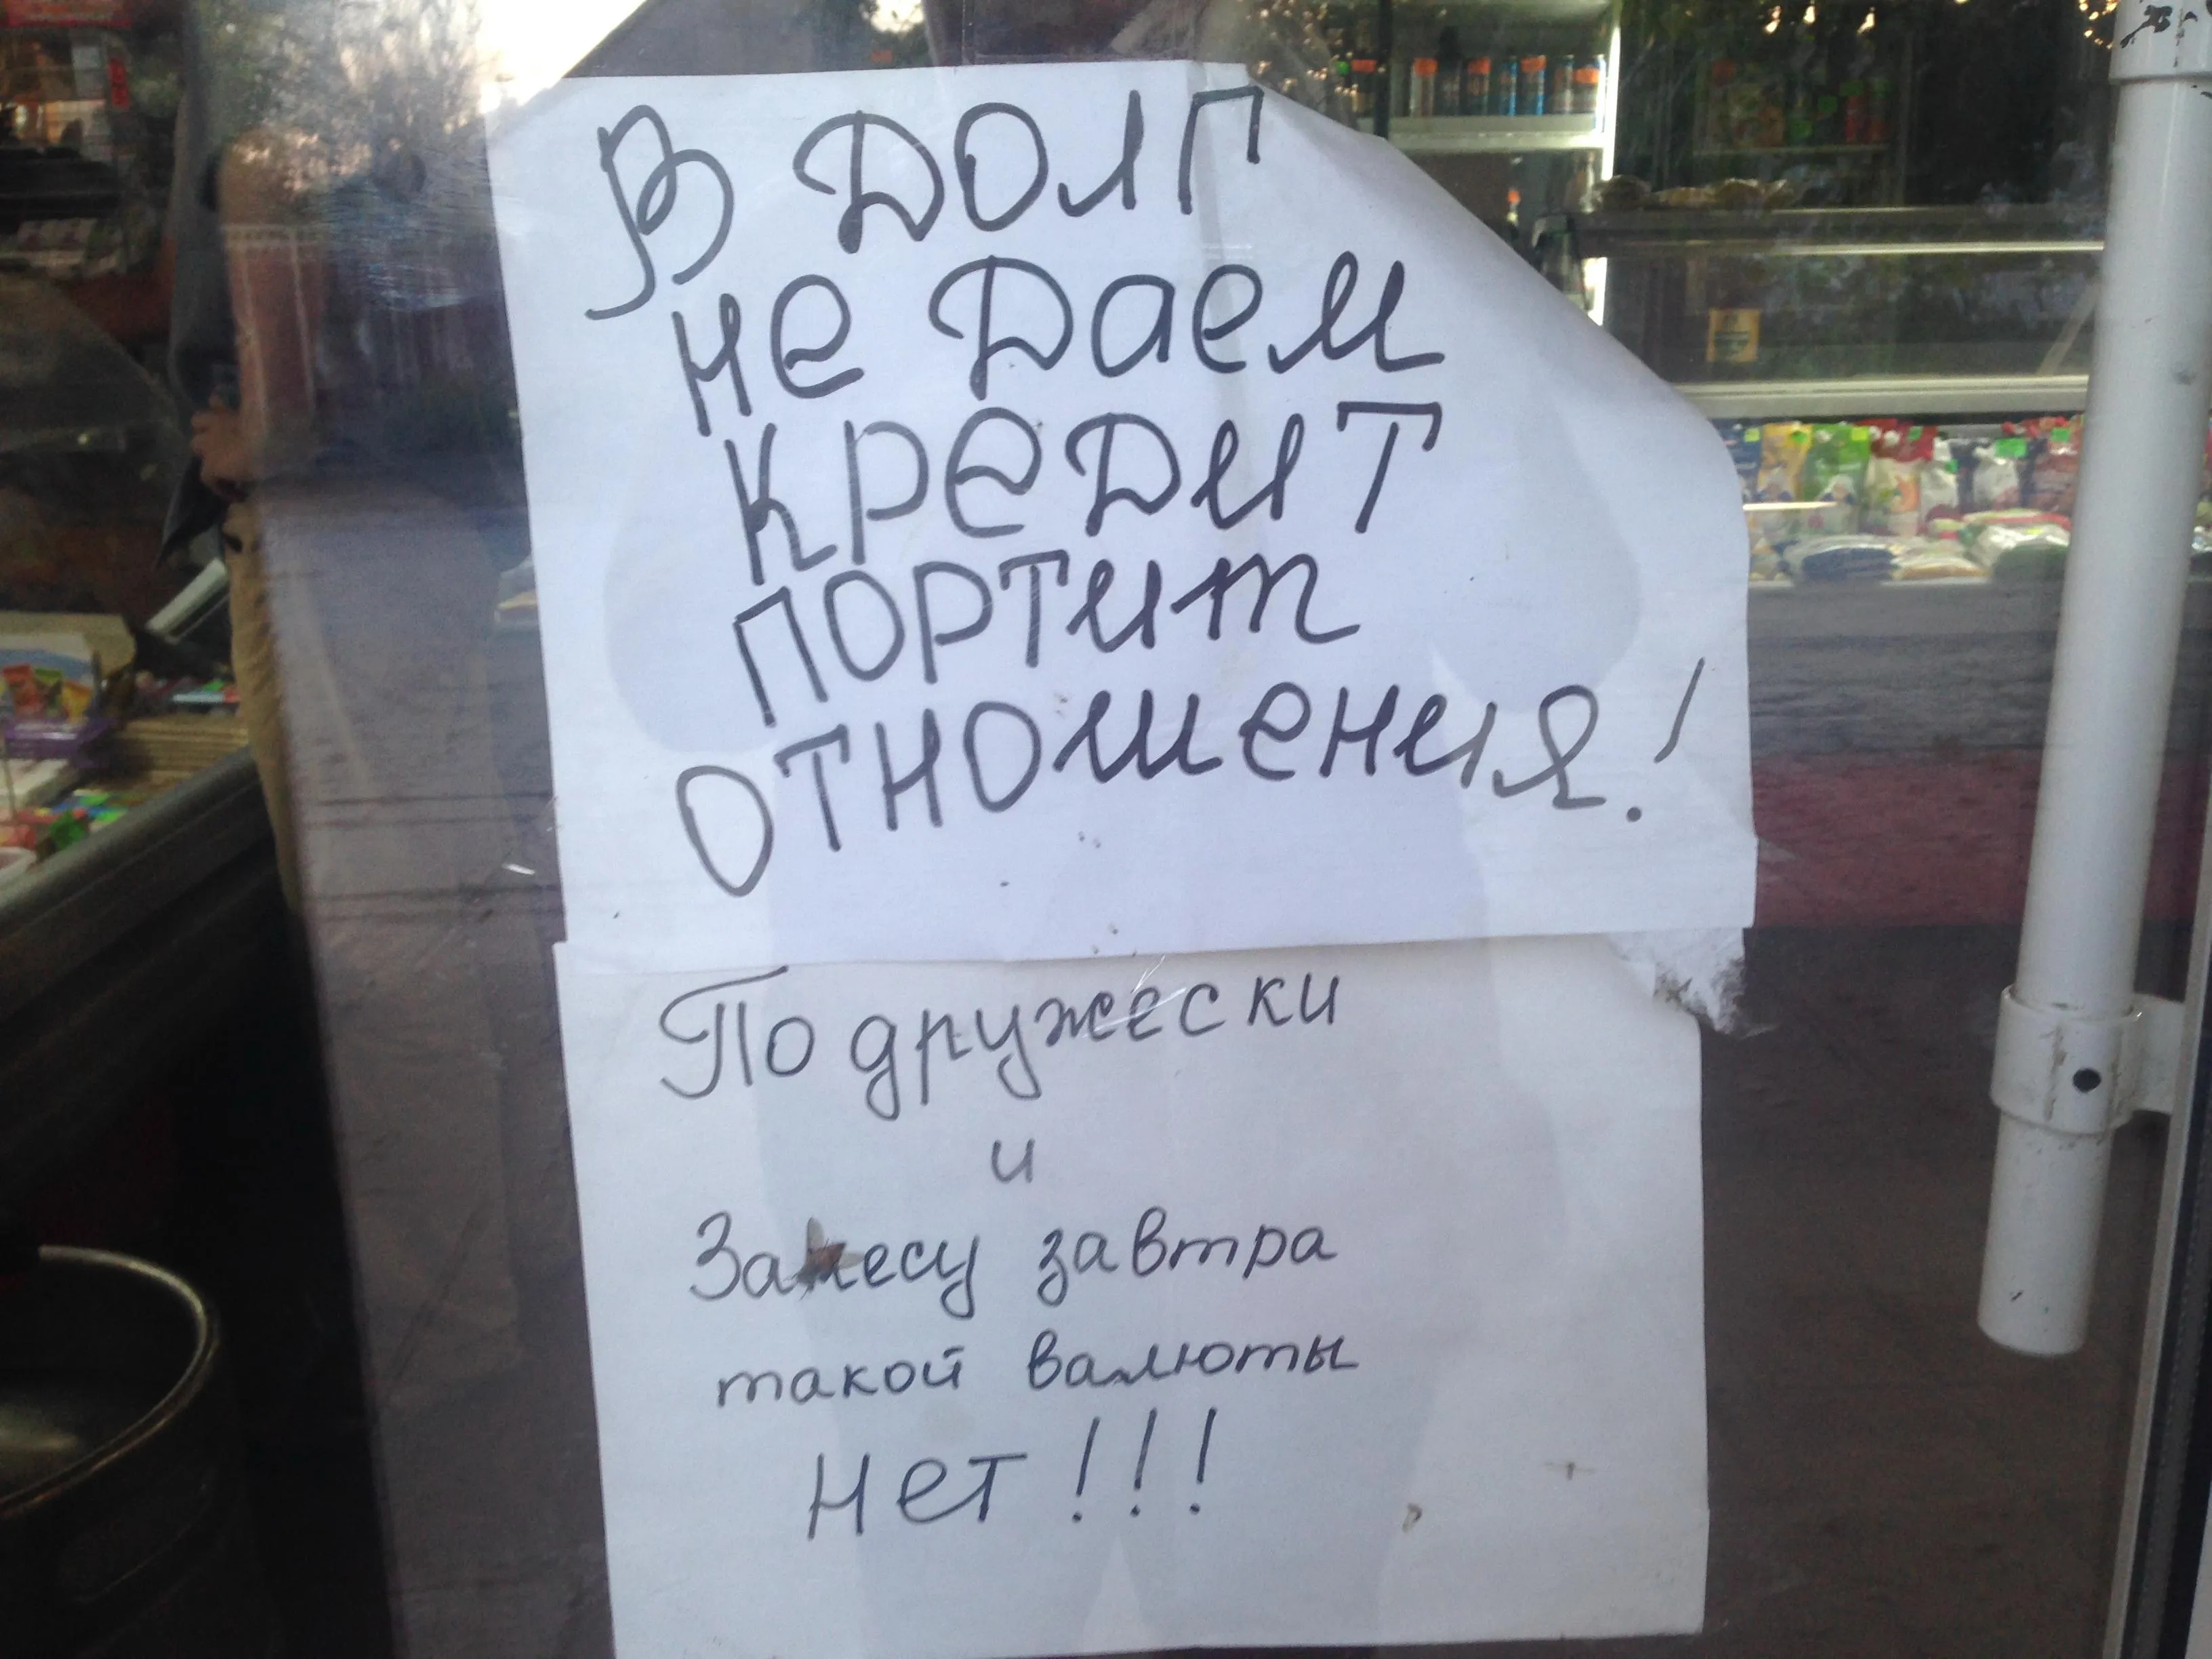 В ДОЛГ
не даем
кредит
портит
отношения!
По дружески
и
Занесу завтра
такой валюты
нет!!!